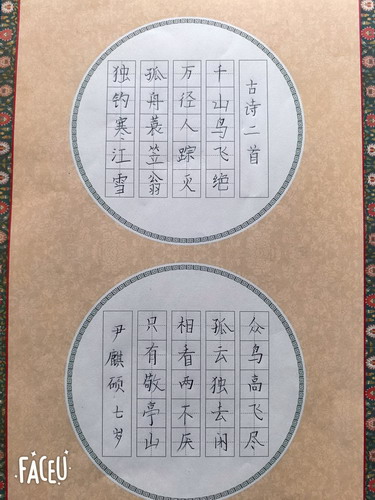 古诗二首
千山鸟飞绝
万径人踪灭
孤舟蓑笠翁
独钓寒江雪
众鸟高飞尽
孤云独去闲
相看两不厌
只有敬亭山
尹麒硕七岁
FACEU